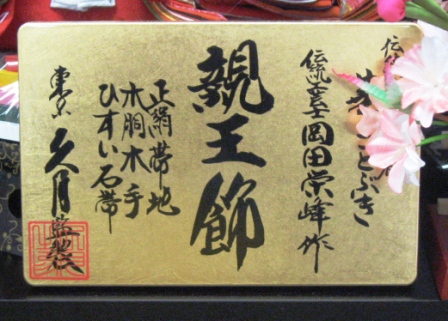 伝統工芸士 岡田栄峰作
親王飾
正絹帯地
木胴木手
ひすい石帯
東京 久月監製